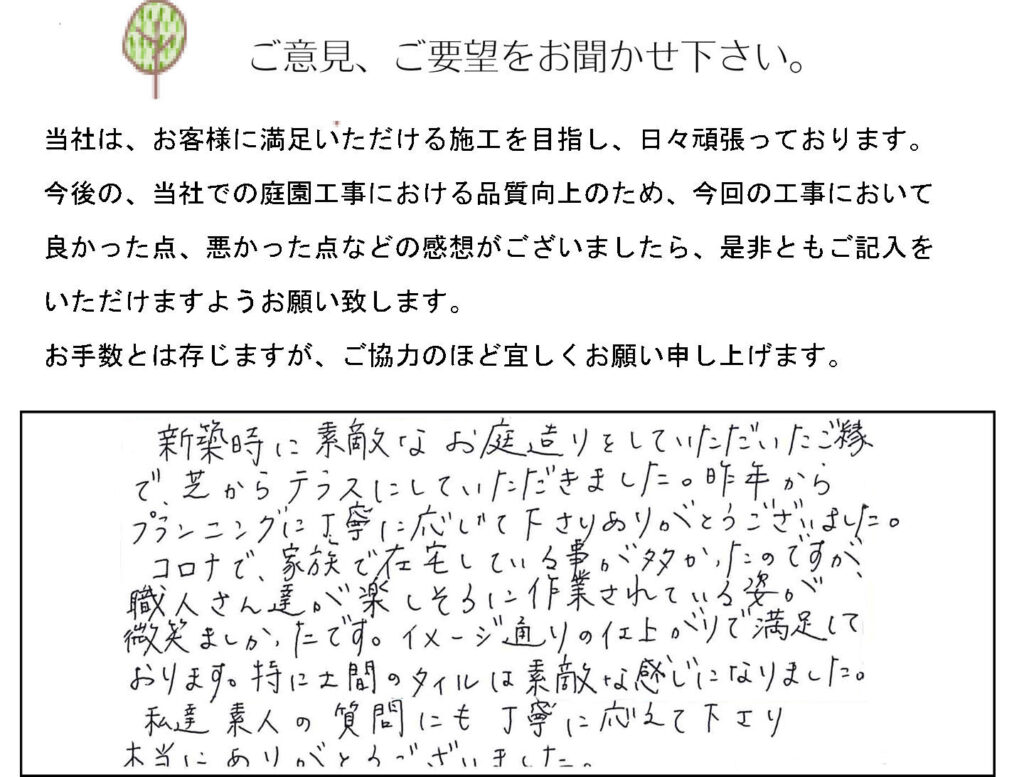 ご意見、ご要望をお聞かせ下さい。
当社は、お客様に満足いただける施工を目指し、日々頑張っております。
今後の、当社での庭園工事における品質向上のため、今回の工事において
良かった点、悪かった点などの感想がございましたら、是非ともご記入を
いただけますようお願い致します。
お手数とは存じますが、ご協力のほど宜しくお願い申し上げます。
新築時に素敵なお庭造りをしていただいたご縁
で、芝からテラスにしていただきました。昨年から
プランニングに丁寧に応じて下さりありがとうございました。
コロナで、家族で在宅している事が多かったのですが、
職人さん達が楽しそうに作業されている姿が
微笑ましかったです。イメージ通りの仕上がりで満足して
おります。特に土間のタイルは素敵な感じになりました。
私達素人の質問にも丁寧に応えて下さり
本当にありがとうございました。